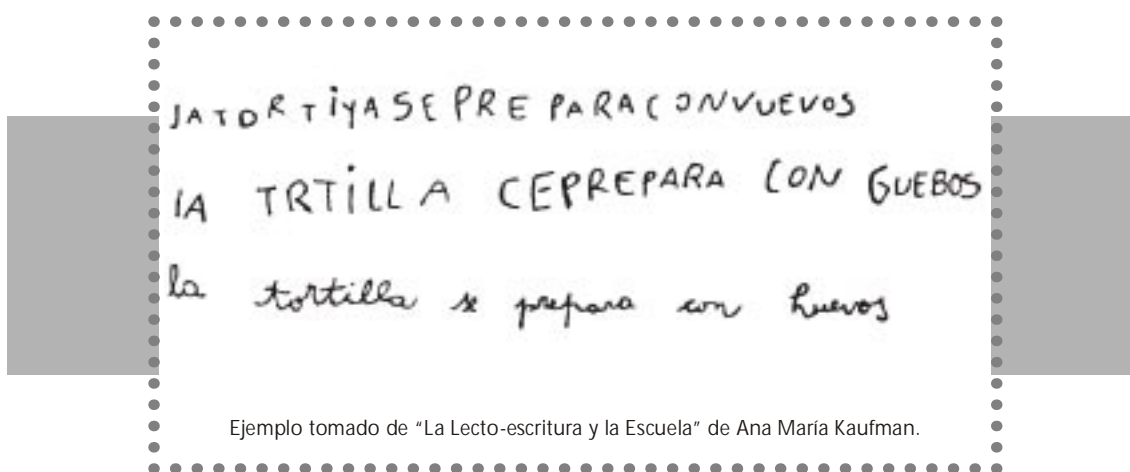 JATORTiYASEPREPARACONVUEVOS
lA TRTiLLA CEPREPARA CON GUEBOS
la tortilla se prepara con huevos
Ejemplo tomado de "La Lecto-escritura y la Escuela" de Ana María Kaufman.